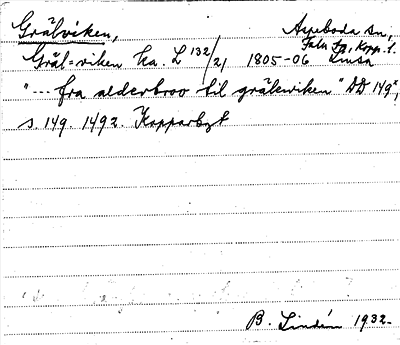 Gräsviken, Aspeboda sn,
Falu dt, Kopp. l.
Gräl=viken ka. L 132/21 1805-06 Linsn
"... fra alderbroo til grälewiken" DD 149x,
s. 149. 1492. Kopparbgt
B. Lindén 1932.